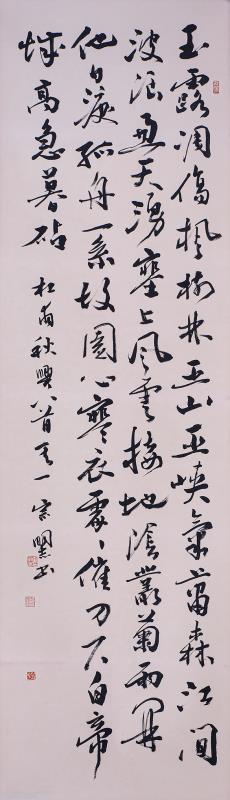 玉露凋傷楓樹林巫山巫峽氣蕭森江間
波浪兼天湧塞上風雲接地陰叢菊兩開
他日淚孤舟一系故園心寒衣處々催刀尺白帝
城高急暮砧 杜甫秋興八首之一 宗書